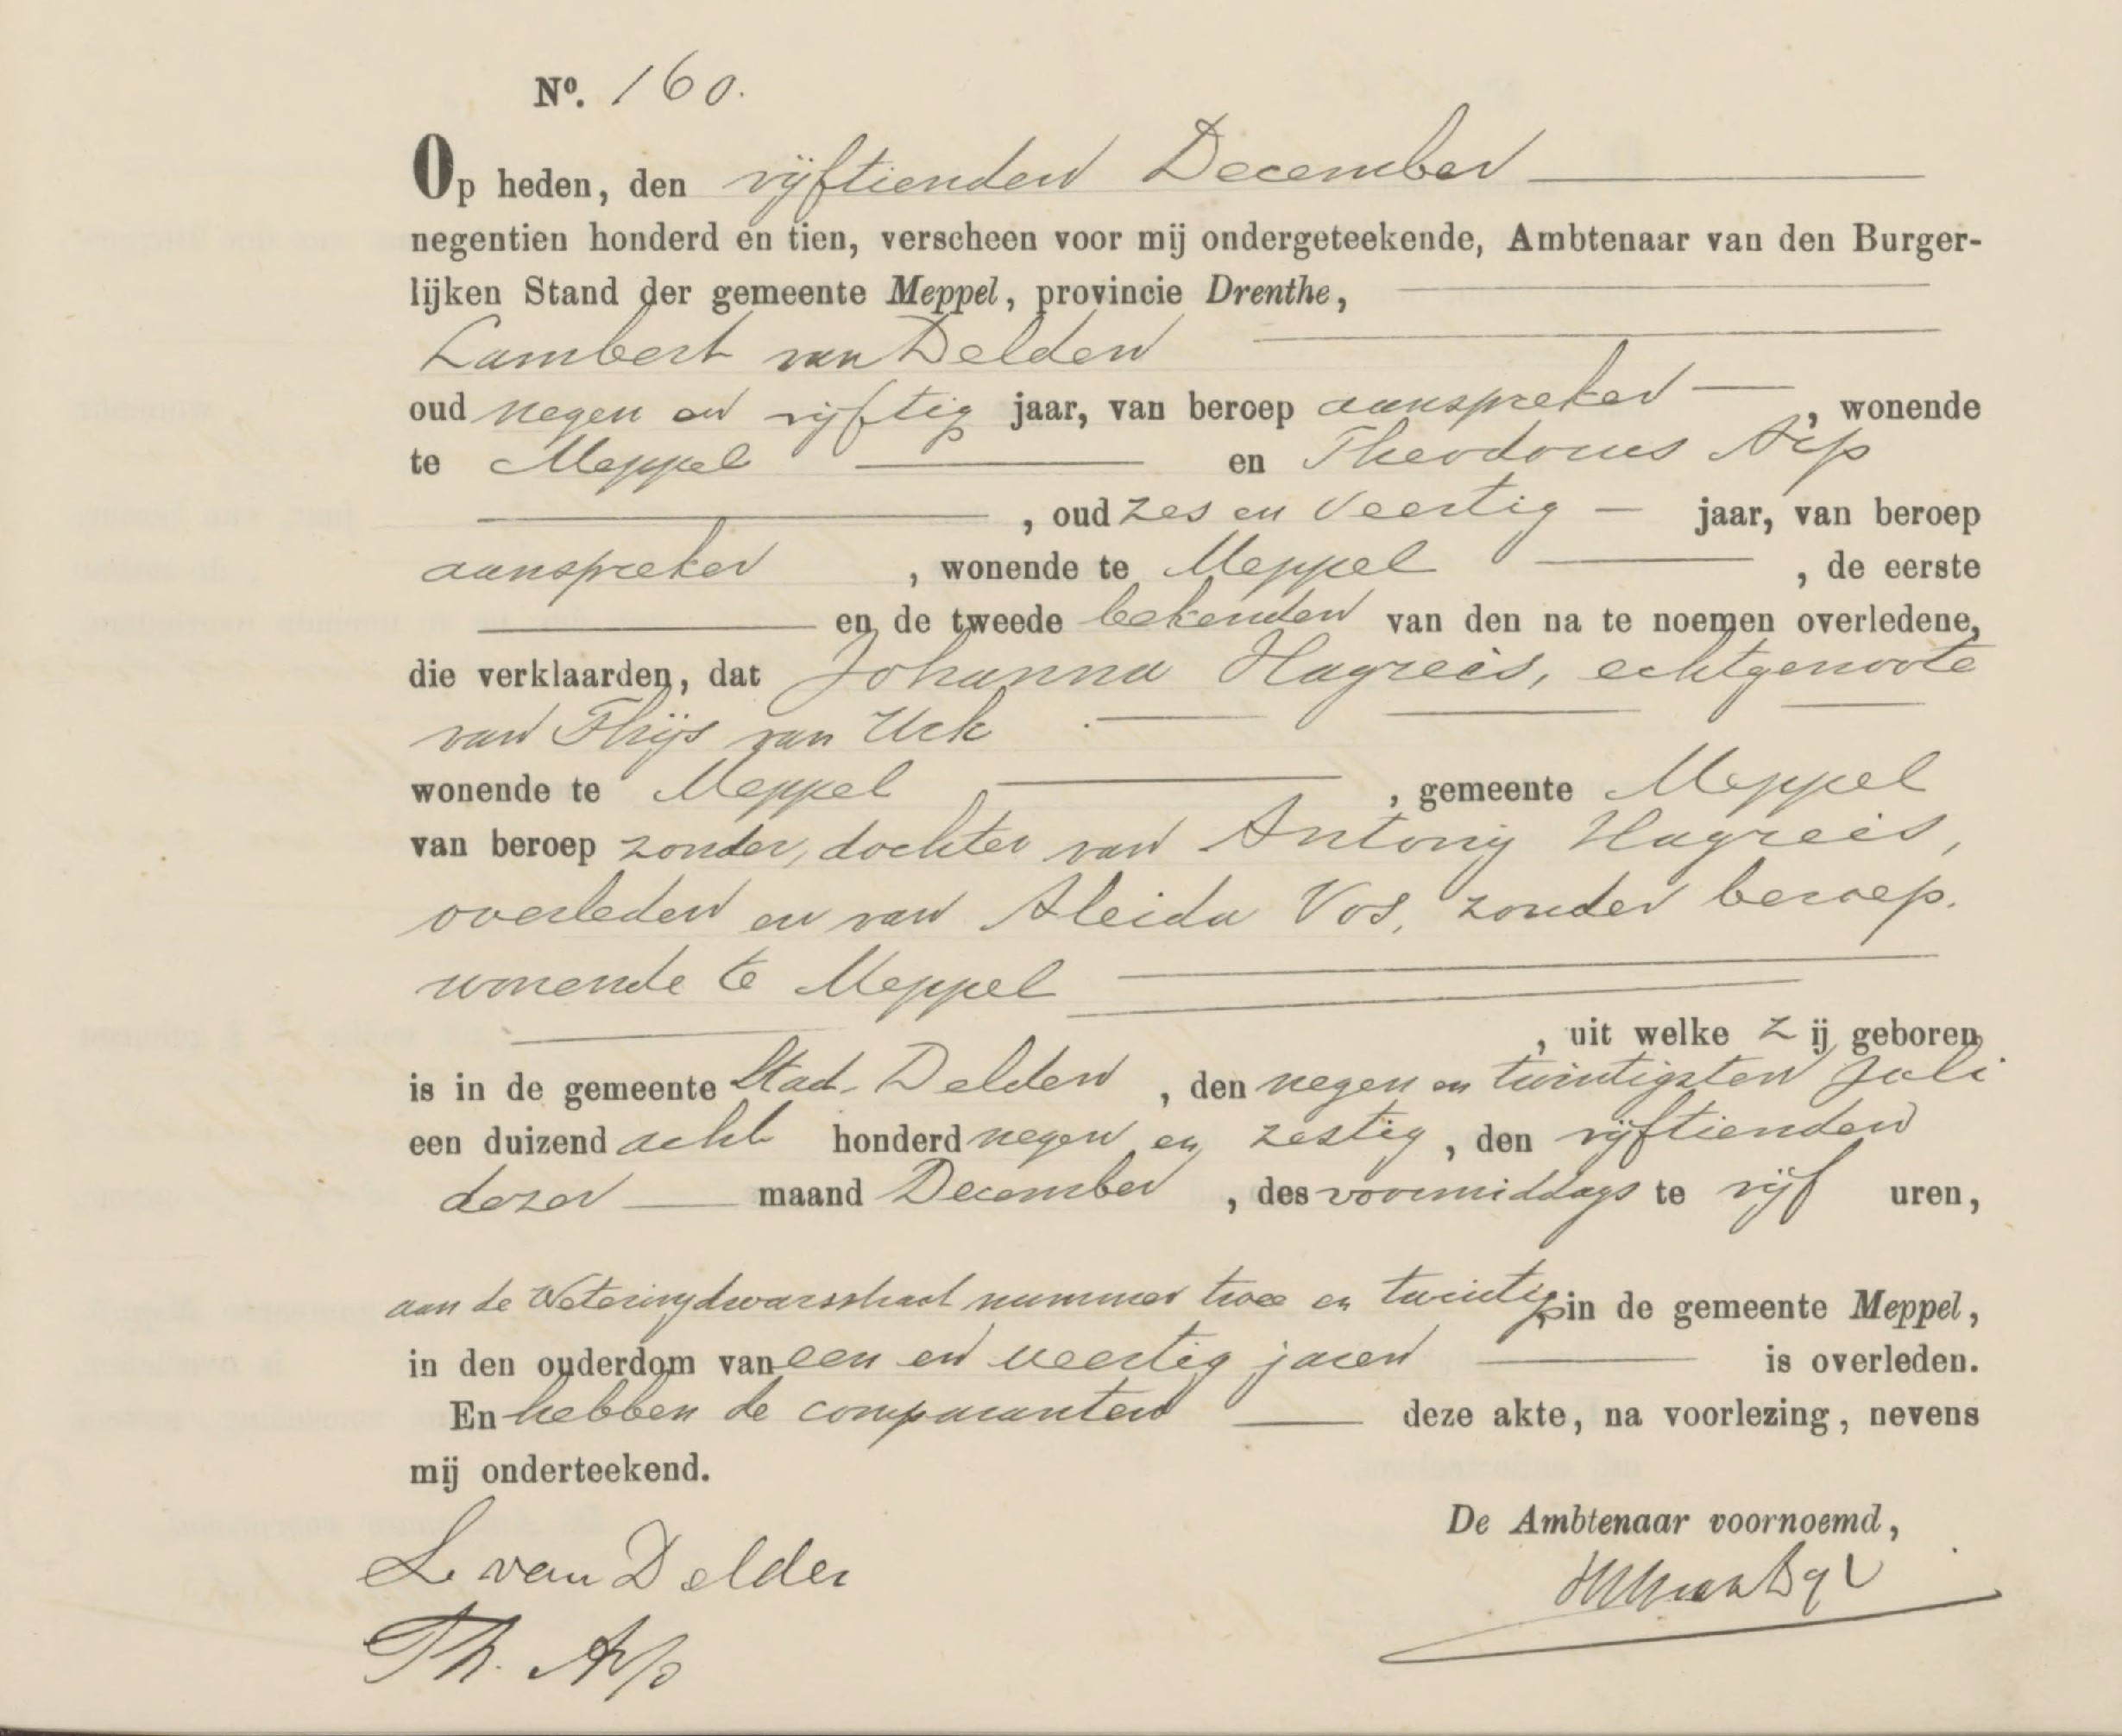 Nº. 160.
Op heden, den vijftienden December
negentien honderd en tien, verscheen voor mij ondergeteekende, Ambtenaar van den Burger-
lijken Stand der gemeente Meppel, provincie Drenthe,
Lambert van Delden
oud negen en vijftig jaar, van beroep aanspreker, wonende
te Meppel en Theodorus Arp
, oud zes en veertig jaar, van beroep
aanspreker, wonende te Meppel, de eerste
en de tweede bekenden van den na te noemen overledene,
die verklaarden, dat Johanna Hagreis, echtgenoote
van Thijs van Urk
wonende te Meppel, gemeente Meppel
van beroep zonder, dochter van Antonij Hagreis,
overleden en van Aleida Vos, zonder beroep.
wonende te Meppel
, uit welke zij geboren
is in de gemeente Stad-Delden, den negen en twintigsten Juli
een duizend acht honderd negen en zestig, den vijftienden
dezer maand December, des voormiddags te vijf uren,
aan de Weteringdwarsstraat nummer twee en twintig, in de gemeente Meppel,
in den ouderdom van een en veertig jaren is overleden.
En hebben de comparanten deze akte, na voorlezing, nevens
mij onderteekend.
De Ambtenaar voornoemd,
L. van Delden
Th. Arp